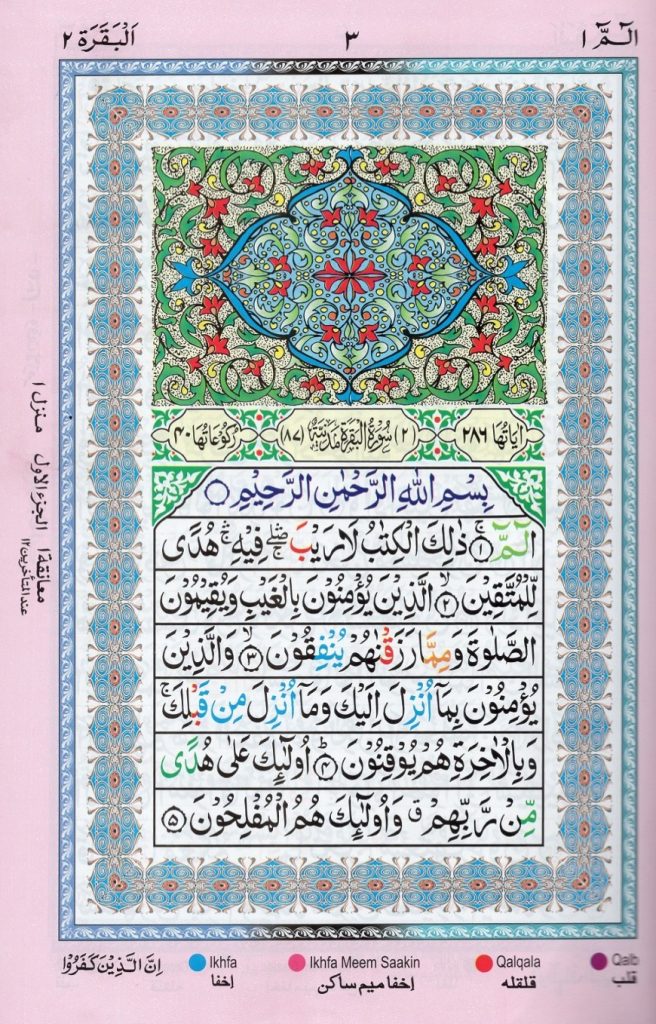 الٓمّٓ ١ ٣ اَلْبَقَرَة ٢
اٰيَاتُهَا ٢٨٦ (٢) سُوْرَةُ الْبَقَرَةِ مَدَنِيَّةٌ (٨٧) رُكُوْعَاتُهَا ٤٠
بِسْمِ اللّٰهِ الرَّحْمٰنِ الرَّحِيْمِ
الٓمّٓ ۚ ﴿١﴾ ذٰلِكَ الْكِتٰبُ لَا رَيْبَ ۛۖ فِيْهِ ۛۚ هُدًى
لِّلْمُتَّقِيْنَ ۙ ﴿٢﴾ الَّذِيْنَ يُؤْمِنُوْنَ بِالْغَيْبِ وَيُقِيْمُوْنَ
الصَّلٰوةَ وَمِمَّا رَزَقْنٰهُمْ يُنْفِقُوْنَ ۙ ﴿٣﴾ وَالَّذِيْنَ
يُؤْمِنُوْنَ بِمَآ اُنْزِلَ اِلَيْكَ وَمَآ اُنْزِلَ مِنْ قَبْلِكَ ۚ
وَبِالْاٰخِرَةِ هُمْ يُوْقِنُوْنَ ؕ ﴿٤﴾ اُولٰٓئِكَ عَلٰى هُدًى
مِّنْ رَّبِّهِمْ ۗ وَاُولٰٓئِكَ هُمُ الْمُفْلِحُوْنَ ﴿٥﴾
معانقة ١ الجزء الاول منزل ١
عند المتأخرين ١٢
اِنَّ الَّذِيْنَ كَفَرُوْا
Ikhfa Ikhfa Meem Saakin Qalqala Qalb
إخفا إخفا ميم ساكن قلقله قلب